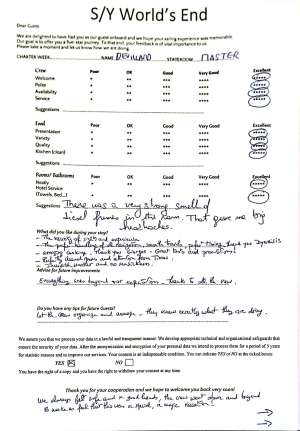 S/Y World's End
Dear Guest,
We are delighted to have had you as our guest onboard and we hope your sailing experience was memorable.
Our goal is to offer you a five-star journey. To that end, your feedback is of vital importance to us.
Please take a moment and let us know how we are doing
CHARTER WEEK NAME STATEROOM MASTER
Crew Poor OK Good Very Good Excellent
Welcome * ** *** **** *****
Polite * ** *** **** *****
Availability * ** *** **** *****
Service * ** *** **** *****
Suggestions
Food Poor OK Good Very Good Excellent
Presentation * ** *** **** *****
Variety * ** *** **** *****
Quality * ** *** **** *****
Kitchen (clean) * ** *** **** *****
Suggestions
Room/ Bathrooms Poor OK Good Very Good Excellent
Ready * ** *** **** *****
Hotel Service
(Towels, Bed...) * ** *** **** *****
Suggestions There was a very strong smell of
diesel fumes in the room. That gave me big
headaches.
What did you like during your stay?
Advise for future improvements
Everything was beyond our expectation, thanks to all the crew.
Do you have any tips for future Guests?
Let the crew organize and manage - they know exactly what they are doing.
We assure you that we process your data in a lawful and transparent manner. We develop appropriate technical and organizational safeguards that
ensure the security of your data. After the anonymization and encryption of your personal data we intend to process them for a period of 5 years
for statistic reasons and to improve our services. Your consent is an indispensable condition. You can indicate YES or NO in the ticked boxes:
YES NO
You have the right of a copy and you have the right to withdraw your consent at any time.
Thank you for your cooperation and we hope to welcome you back very soon!
We always felt safe and in good hands, the crew went above and beyond
to make us feel that this was a special,